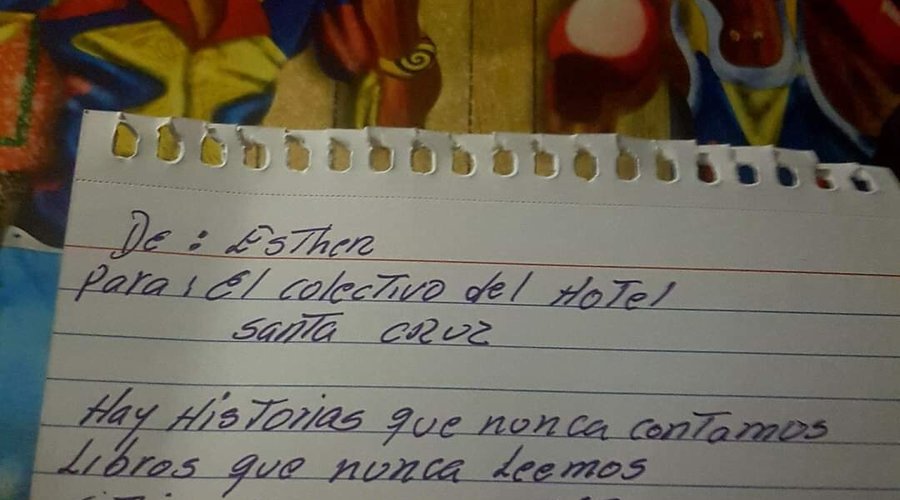 De: Esther
Para: El colectivo del Hotel
Santa Cruz
Hay Historias que nunca contamos
Libros que nunca Leemos